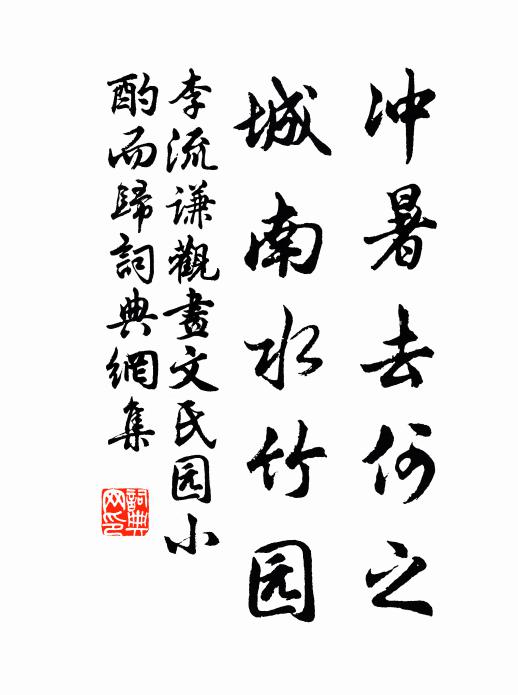 冲暑去何之
城南水竹园
李流谦觀畫文氏园小
酌而歸詞典網集
詞典网印